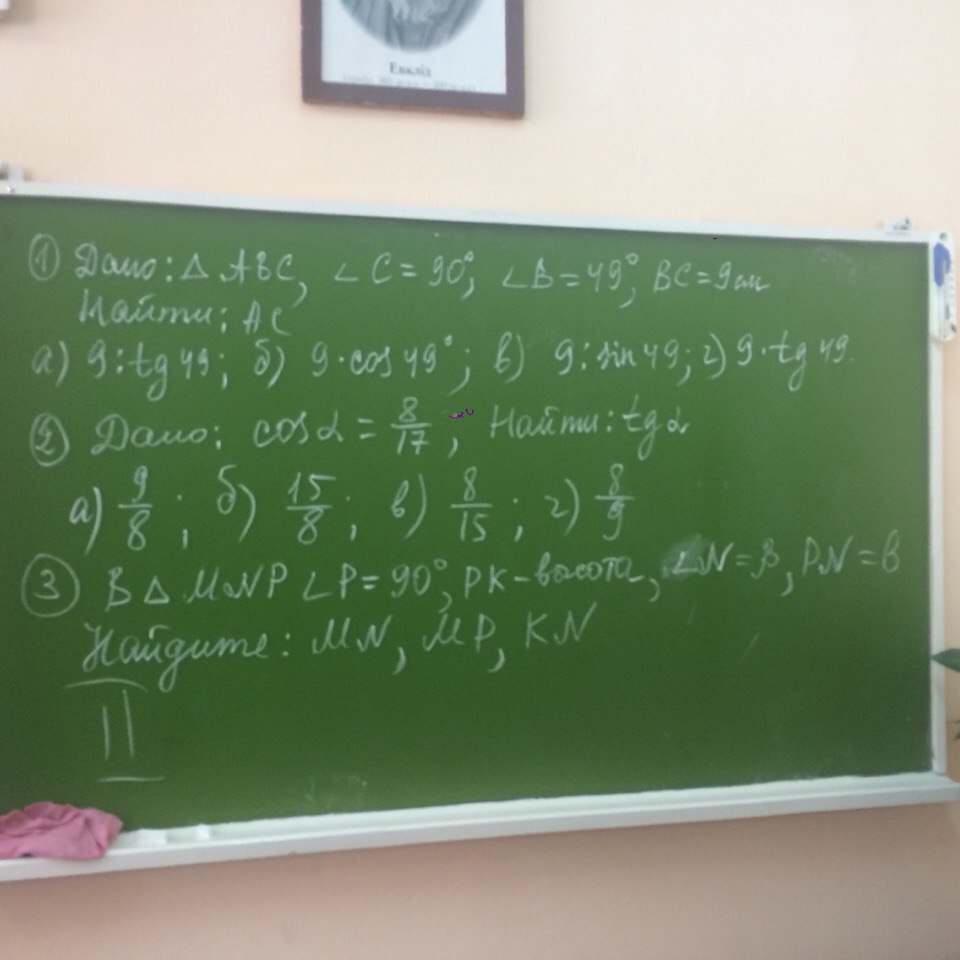 Евклід
① Дано: △ ABC, ∠C = 90°, ∠B = 49°, BC = 9 см
Найти: AC
а) 9 : tg 49; б) 9 · cos 49°; в) 9 : sin 49; г) 9 · tg 49.
② Дано: cos α = 8/17; Найти: tg α
а) 9/8; б) 15/8; в) 8/15; г) 8/9
③ В △ MNP ∠P = 90°, PK – высота, ∠N = β, PN = в
Найдите: MN, MP, KN
II